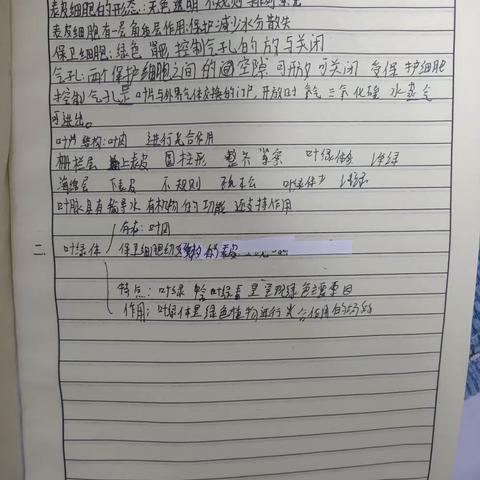 表皮细胞的形态:无色透明 不规则 排列紧密
表皮细胞有一层角质层作用:保护减少水分散失
保卫细胞:绿色 控制气孔的开放与关闭
气孔:两个保护细胞之间的空隙 可开放可关闭 受保护细胞
控制气孔是叶片与外界气体交换的门户,开放时氧气 二氧化碳 水蒸气
可进出。
叶片结构:叶肉 进行光合作用
栅栏层 上表皮 圆柱形 整齐 紧密 叶绿体多 深绿
海绵层 下表皮 不规则 疏松 叶绿体少 浅绿
叶脉具有输导水有机物的功能 还支持作用
存在:叶肉
二、 叶绿体 保卫细胞幼
特点:叶绿 叶绿素是呈现绿色主要原因
作用:叶绿体是绿色植物进行光合作用的场所